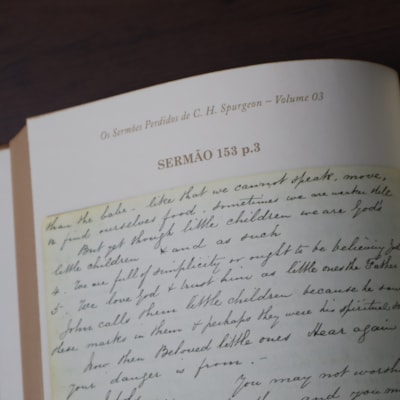 Os Sermões Perdidos de C. H. Spurgeon – Volume 03
SERMÃO 153 p.3
than the babe. like that we cannot speak, move,
or find ourselves food. sometimes we are
But yet though little children we are God's
little children & and as such
4. We are full of simplicity or ought to be believing God
5. We love God & trust him as little ones the Father
John calls them little children because he saw
these marks in them & perhaps they were his spiritual
Now then Beloved little ones Hear again
your danger is from. –
You may not worship
and you